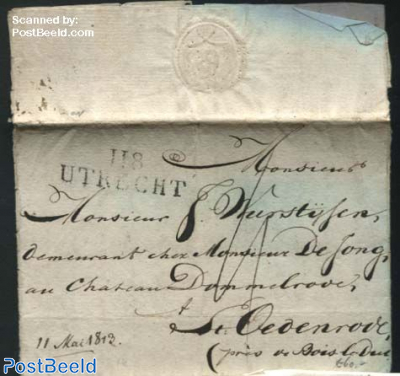 Scanned by:
PostBeeld.com
118
UTRECHT
Monsieur
Monsieur J.
demeurant chez Monsieur De Jong,
au Chateau Dommelrode,
à
St. Oedenrode,
(près de Bois le Duc
11 Mai 1812
PostBeeld